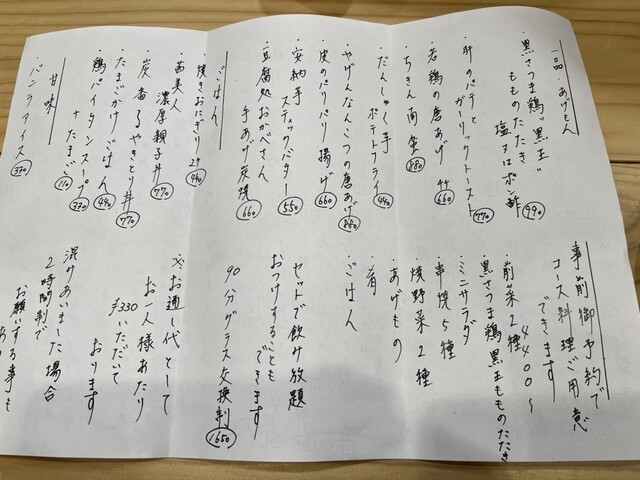 一品 あげもん
・黒さつま鶏"黒王"
もものたたき
塩又はポン酢 990
・肝のパテと
ガーリックトースト 770
・若鶏の唐あげ 4ケ 660
・ちきん南蛮 880
・だんしゃく芋
ポテトフライ 440
・やげんなんこつの唐あげ 880
・皮のパリパリ揚げ 660
・安納芋
スティックバター 550
・豆腐処おかべさん
手あげ炭焼 660
ごはん
・焼きおにぎり 2ケ 440
・茜美人
濃厚親子丼 770
・炭香るやきとり丼 770
・たまごかけごはん 440
・鶏パイタンスープ 330
+たまご 110
甘味
・バニラアイス 330
事前御予約で
コース料理ご用意
できます
4400〜
・前菜2種
・黒さつま鶏黒王もものたたき
・ミニサラダ
・串焼5種
・焼野菜2種
・あげもの
・肴
・ごはん
セットで飲み放題
おつけすることも
できます
90分グラス交換制 1650
※お通し代として
お人様あたり
¥330いただいて
おります
混みあいました場合
2時間制で
お願いする事も